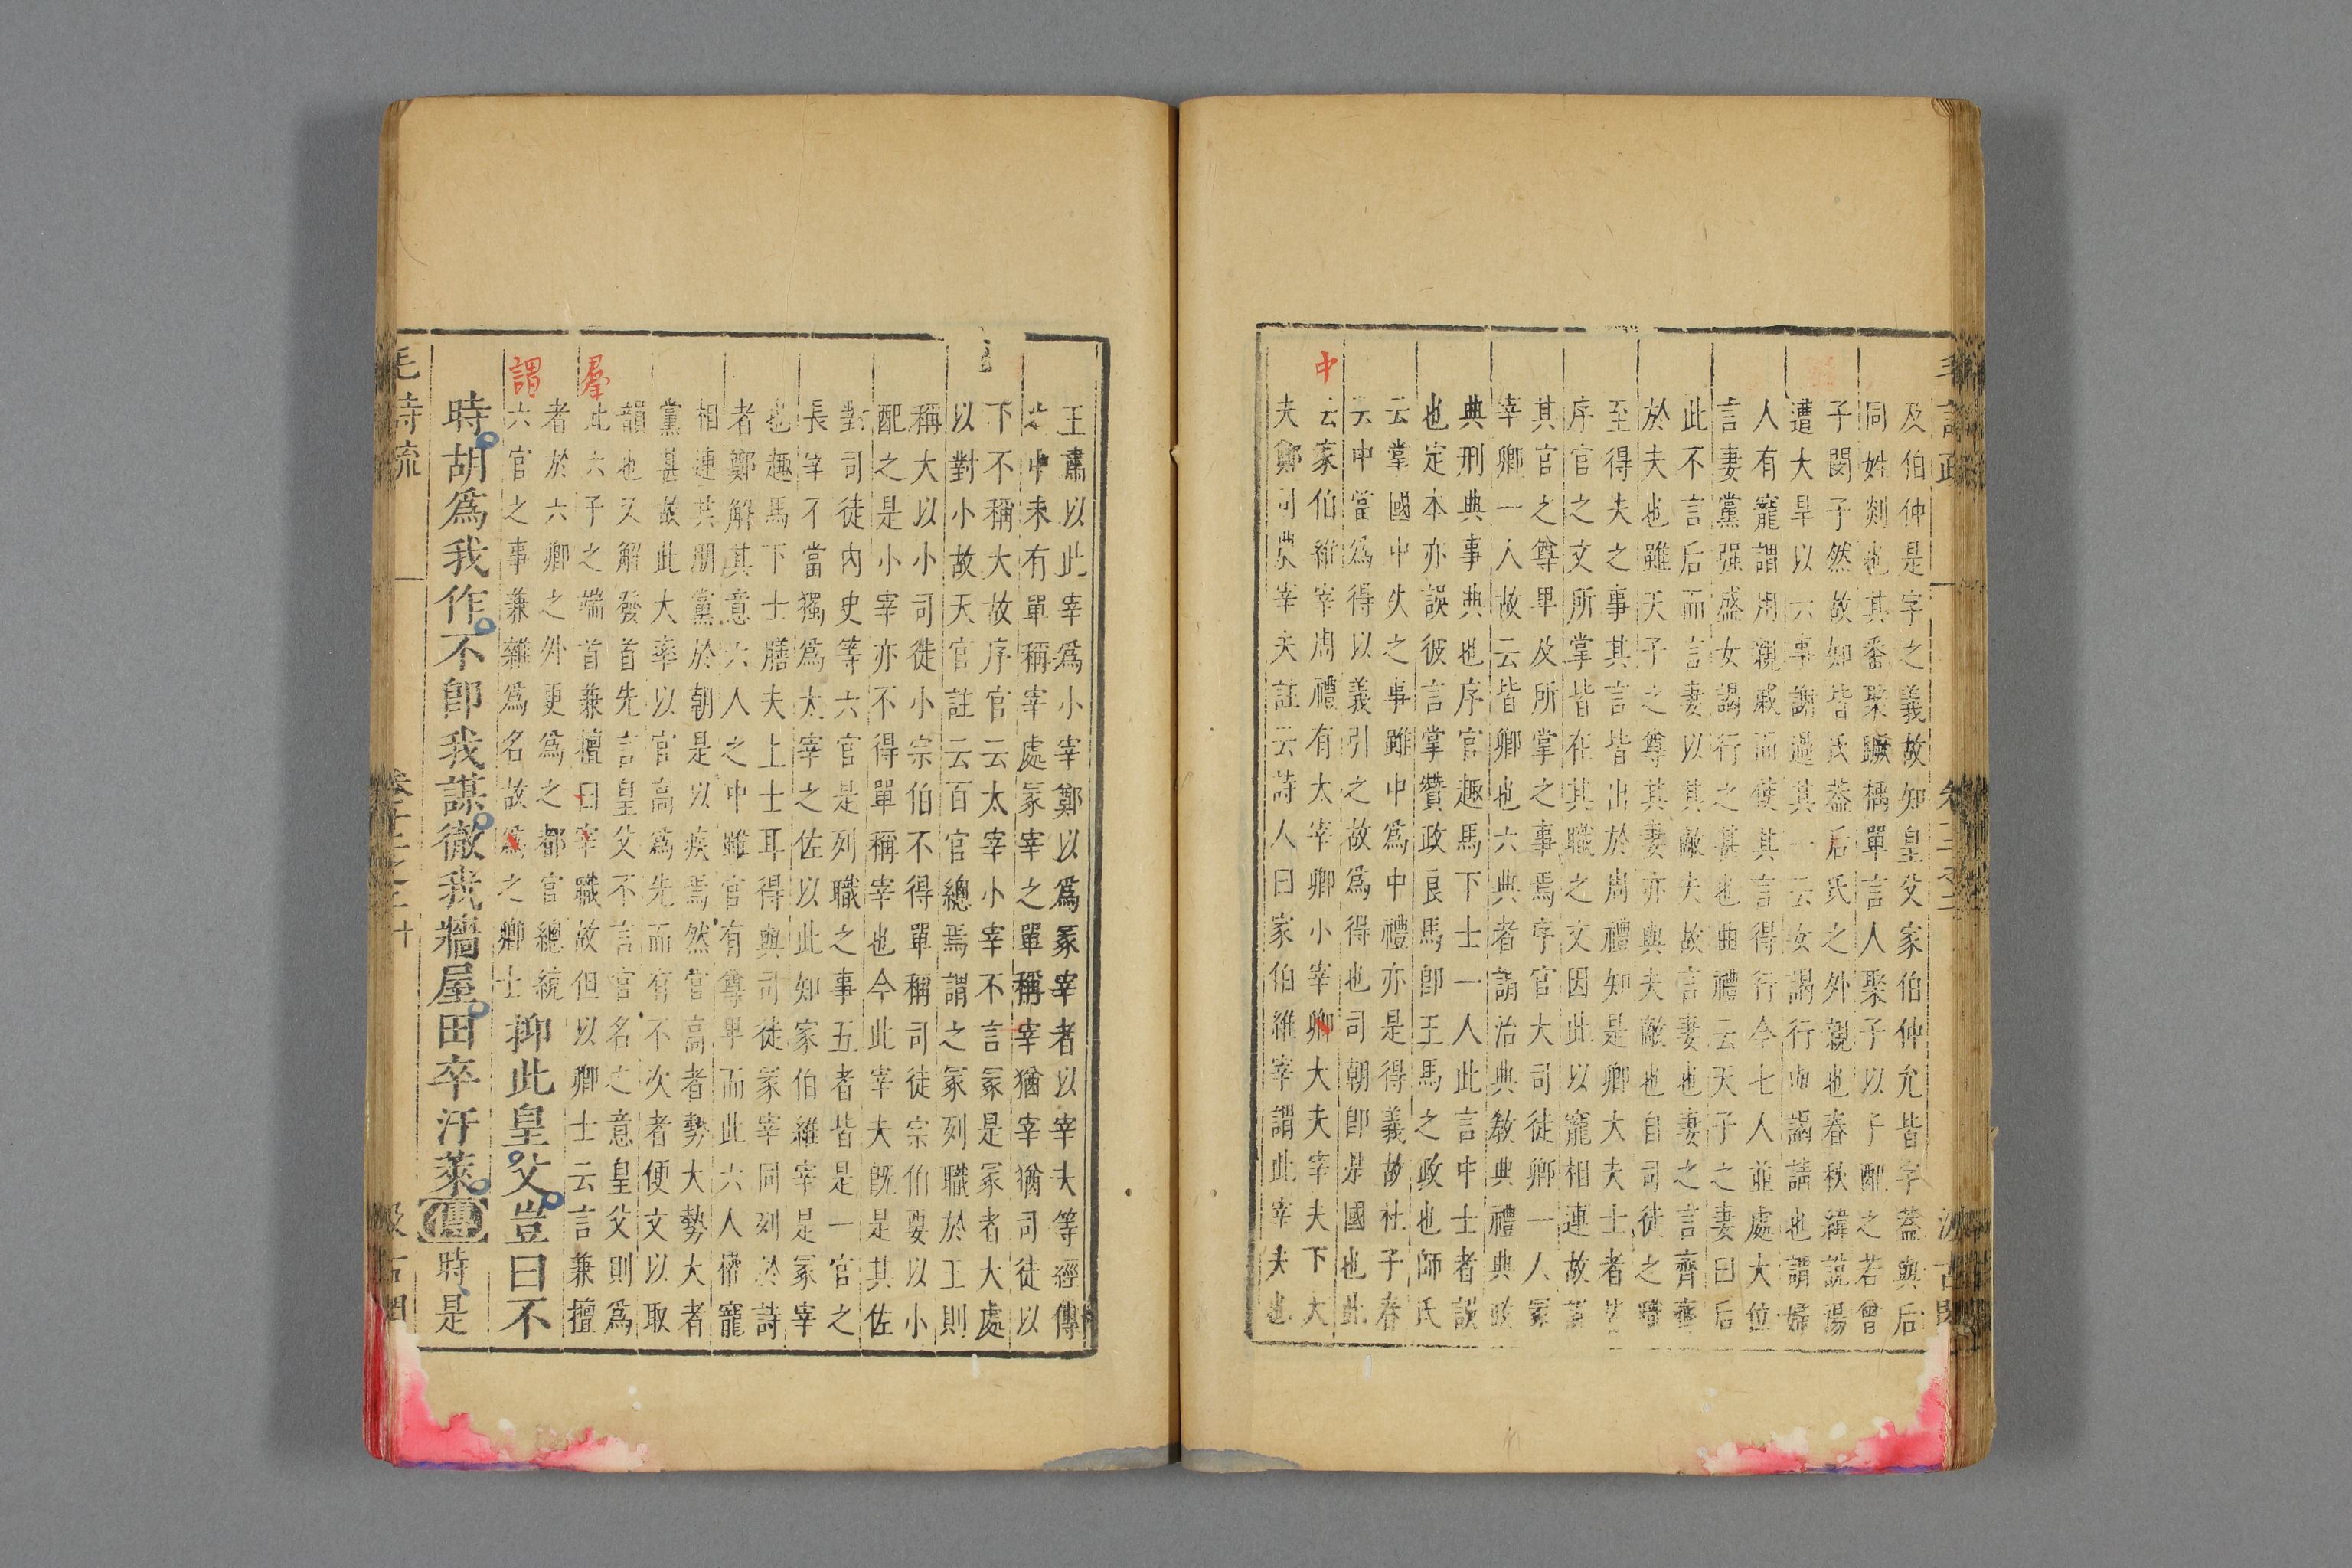 毛詩疏
汲古閣
及伯仲是字之義故知皇父家伯仲允皆字蓋與后
同姓剡也其番聚蹶楀單言人聚子以子配之若曾
子閔子然故知皆氏蓋后氏之外親也春秋緯說湯
遭大旱以六事謝過其一云女謁行與謁請也謂婦
人有寵謂用親戚而使其言得行今七人並處大位
言妻黨强盛女謁行之甚也曲禮云天子之妻曰后
此不言后而言妻以其敵夫故言妻也妻之言齊齊
於夫也雖天子之尊其妻亦與夫敵也自司徒之職
至得夫之事其言皆出於周禮知是卿大夫士者
序官之文所掌皆在其職之文因此以寵相連故
其官之尊畢及所掌之事焉序官大司徒卿一人冢
宰卿一人故云皆卿也六典者謂治典敎典禮典政
典刑典事典也序官趣馬下士一人此言中士者誤
也定本亦誤彼言掌贊政良馬卽王馬之政也師氏
云掌國中失之事雖中爲中禮亦是得義故社子春
云中當爲得以義引之故爲得也司朝卽是國也此
中
云家伯維宰周禮有太宰卿小宰卿大夫宰夫下大
夫鄭司農宰夫註云詩人曰家伯維宰謂此宰夫也
王肅以此宰爲小宰鄭以爲冢宰者以宰大等經傳
之中未有單稱宰處冢宰之單稱宰猶宰猶司徒以
下不稱大故序官云太宰小宰不言冢是冢者大處
以對小故天官註云百官總焉謂之冢列職於王則
稱大以小司徒小宗伯不得單稱司徒宗伯要以小
配之是小宰亦不得單稱宰也今此宰夫旣是其佐
對司徒內史等六官是列職之事五者皆是一官之
長宰不當獨爲太宰之佐以此知家伯維宰是冢宰
也趣馬下士膳夫上士耳得與司徒冢宰同列於詩
者鄭解其意六人之中雖官有尊畢而此六人權寵
相連其朋黨於朝是以疾焉然官高者勢大勢大者
黨甚故此大率以官高爲先而有不次者便文以取
韻也又解發首先言皇父不言官名之意皇父則爲
羣
此六子之端首兼擅曰宰職故但以卿士云言兼擅
者於六卿之外更爲之都官總統
謂
六官之事兼雜爲名故爲之卿士
抑此皇父豈曰不
時胡爲我作不卽我謀徹我牆屋田卒汙萊傳時是
毛詩疏